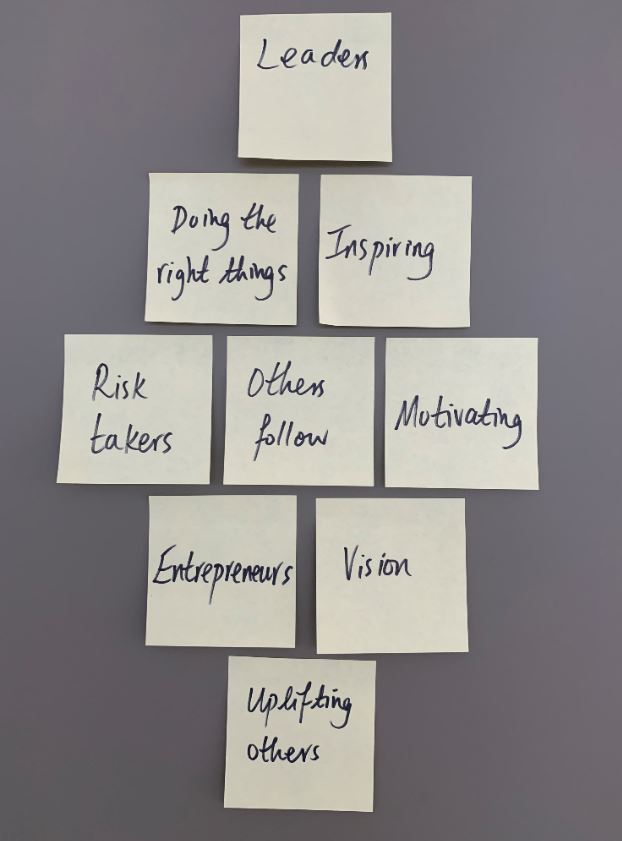 Leaders
Doing the
right things
Inspiring
Risk
takers
Others
follow
Motivating
Entrepreneurs
Vision
Uplifting
others